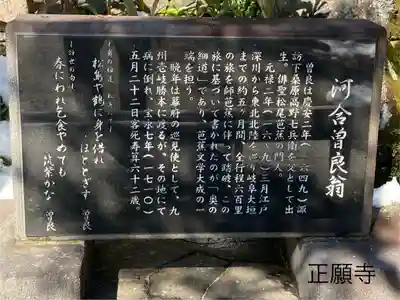 河合曽良翁
曽良は慶安二年(一六四九)諏
訪下桑原高野七兵衛を父として出
生。俳聖松尾芭蕉の門人。
元禄二年(一六八九)三月江戸
深川から東北北陸を巡り岐阜大垣
までの約五ヶ月間、全行程六百里
の旅を師芭蕉に伴って踏破、この
旅に基づいて書かれたのが「奥の
細道」であり、芭蕉文学大成の一
端を担う。
晩年は幕府の巡見使として、九
州壱岐勝本に渡るが、その地にて
病に倒れ、宝永七年(一七一〇)
五月二十二日客死寿算六十二歳。
松島や鶴に身を借れ
ほととぎす 曽良
春にわれ乞食やめても
筑紫かな 曽良
正願寺